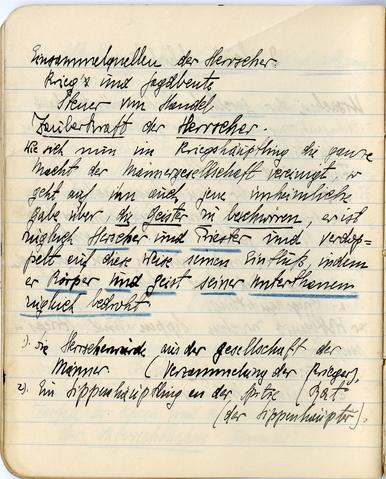 Einsammelquellen der Herrscher.
Krieg's und Jagdbeute
Steuer von Handel
Zauberkraft der Herrscher.
Wie sich nun im Kriegshäuptling die ganze
Macht der Männergesellschaft vereinigt, so
geht auf ihn auch jene unheimliche
Gabe über, die Geister zu beschwören, er ist
zugleich Herscher und Priester und verdop-
pelt auf diese Weise seinen Einfluß, indem
er Körper und Geist seiner Unterthanen
zugleich bedroht
1). Die Herrscherwürde aus der Gesellschaft der
Männer (Versammlung der Krieger),
2). Ein Sippenhäuptling an der Spitze (Rat
(der Sippenhäupter).